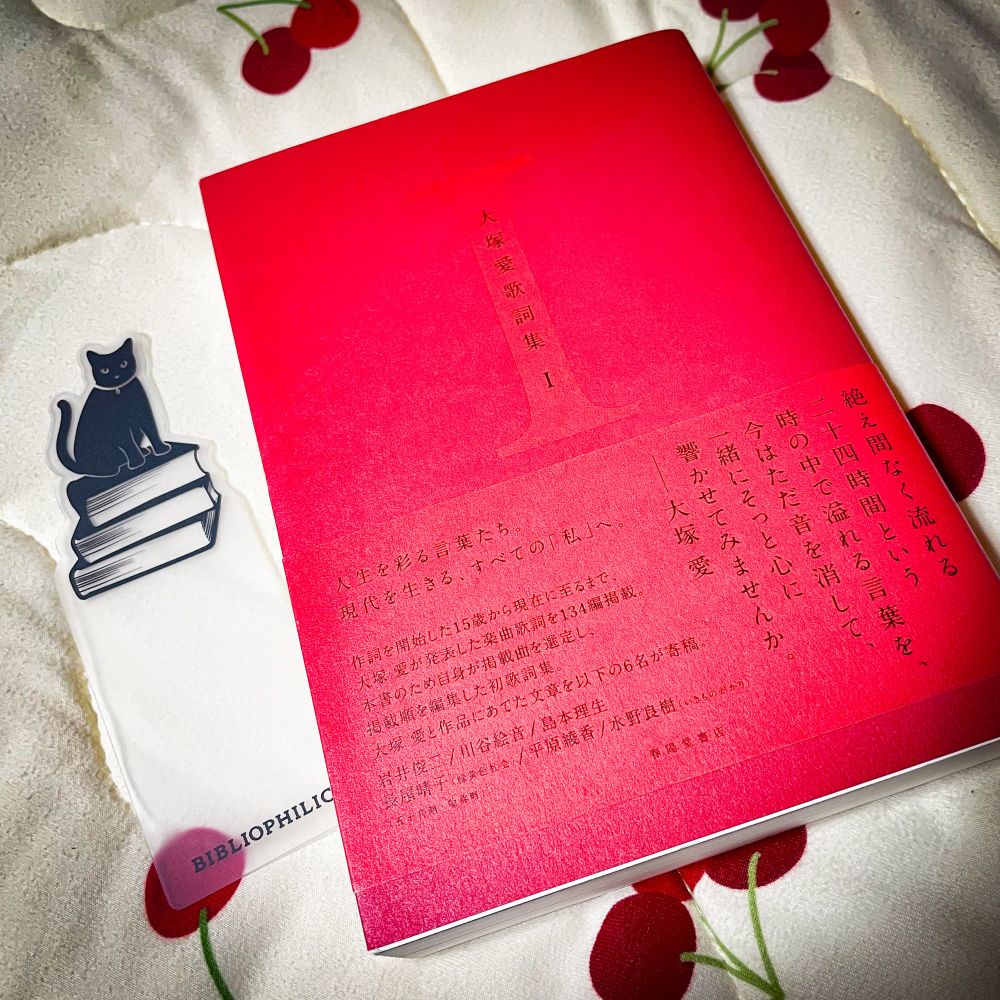 大塚愛歌詞集 I
絶え間なく流れる
二十四時間という
時の中で溢れる言葉を、
今はただ音を消して、
一緒にそっと心に
響かせてみませんか。
──大塚 愛
人生を彩る言葉たち。
現代を生きる、すべての「私」へ。
作詞を開始した15歳から現在に至るまで、
大塚 愛が発表した楽曲歌詞を134編掲載。
本書のため自身が掲載曲を選定し、
掲載順を編集した初歌詞集
大塚 愛と作品にあてた文章を以下の6名が寄稿。
岩井俊二/川谷絵音/島本理生
長屋晴子(緑黄色社会)/平原綾香/水野良樹(いきものがかり)
春陽堂書店
BIBLIOPHILIC